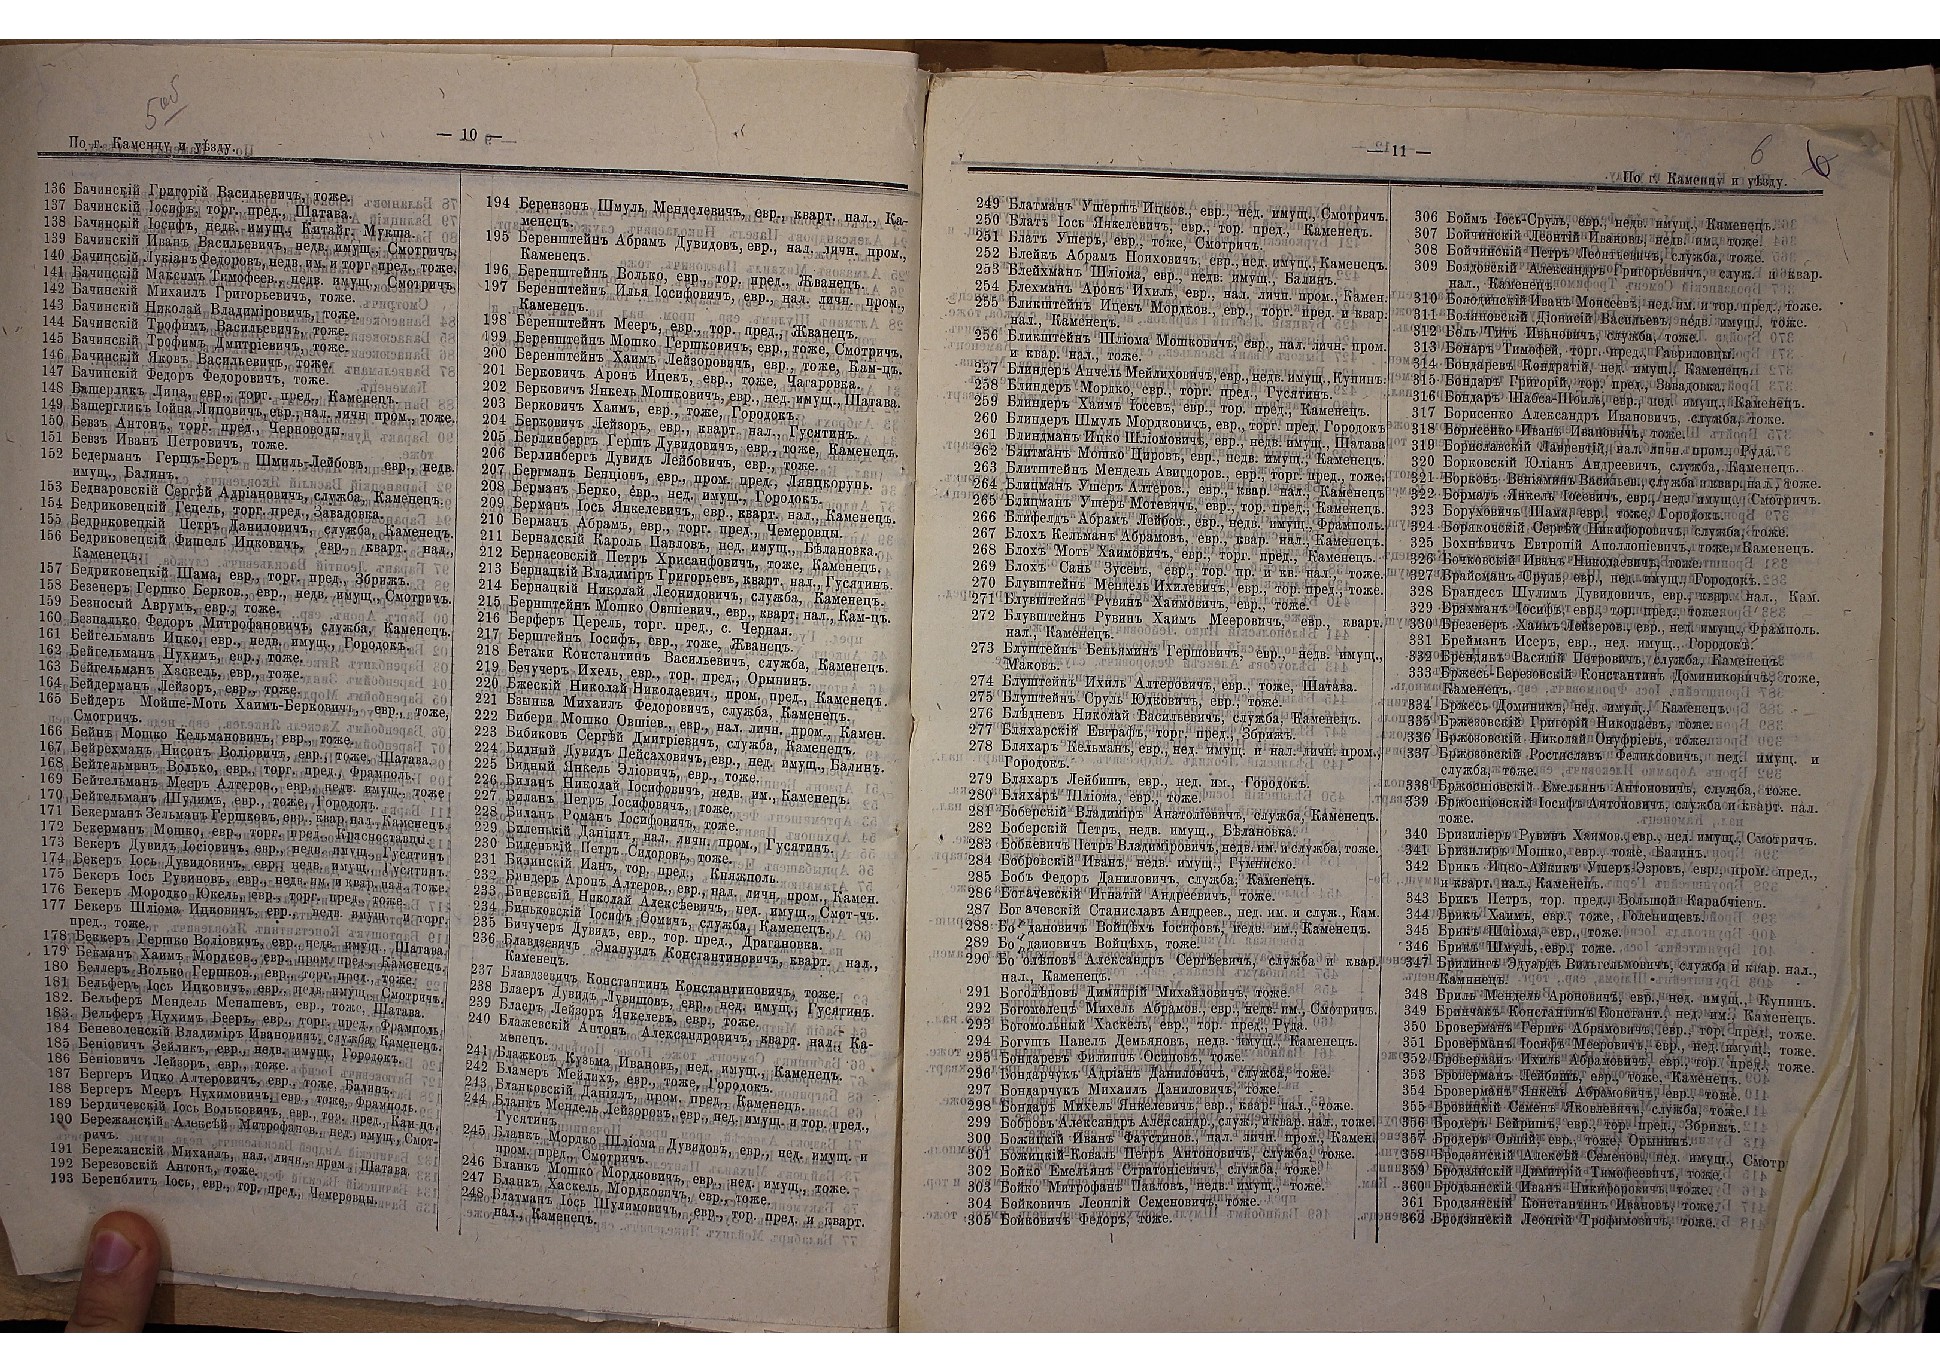 5 об
— 10 —
По г. Каменцу и уѣзду.
136 Бачинскій Григорій Васильевичъ, тоже.
137 Бачинскій Іосифъ, торг. пред., Шатава.
138 Бачинскій Іосифъ, недв. имущ., Китайг. Мукша.
139 Бачинскій Иванъ Васильевичъ, недв. имущ., Смотричъ.
140 Бачинскій Лукіанъ Федоровъ, недв. им. и торг. пред., тоже.
141 Бачинскій Максимъ Тимофеев., недв. имущ., Смотричъ.
142 Бачинскій Михаилъ Григорьевичъ, тоже.
143 Бачинскій Николай Владиміровичъ, тоже.
144 Бачинскій Трофимъ Васильевичъ, тоже.
145 Бачинскій Трофимъ Дмитріевичъ, тоже.
146 Бачинскій Яковъ Васильевичъ, тоже.
147 Бачинскій Федоръ Федоровичъ, тоже.
148 Башерликъ Липа, евр., торг. пред., Каменецъ.
149 Башергликъ Іойна Липовичъ, евр., нал. личн. пром., тоже.
150 Бевзъ Антонъ, торг. пред., Черноводы.
151 Бевзъ Иванъ Петровичъ, тоже.
152 Бедерманъ Гершъ-Беръ Шмиль-Лейбовъ, евр., недв.
имущ., Балинъ.
153 Беднаровскій Сергѣй Адріановичъ, служба, Каменецъ.
154 Бедриковецкій Гецель, торг. пред., Завадовка.
155 Бедриковецкій Петръ Даниловичъ, служба, Каменецъ.
156 Бедриковецкій Фишель Ицковичъ, евр., кварт. нал.,
Каменецъ.
157 Бедриковецкій Шама, евр., торг. пред., Збрижъ.
158 Безенеръ Гершко Берков., евр., недв. имущ., Смотричъ.
159 Безносый Аврумъ, евр., тоже.
160 Безпалько Федоръ Митрофановичъ, служба, Каменецъ.
161 Бейгельманъ Ицко, евр., недв. имущ., Городокъ.
162 Бейгельманъ Нухимъ, евр., тоже.
163 Бейгельманъ Хаскель, евр., тоже.
164 Бейдерманъ Лейзоръ, евр., тоже.
165 Бейдеръ Мойше-Моть Хаимъ-Берковичъ, евр., тоже,
Смотричъ.
166 Бейнъ Мошко Кельмановичъ, евр., тоже.
167 Бейрехманъ Нисонъ Воліовичъ, евр., тоже, Шатава.
168 Бейтельманъ Волько, евр., торг. пред., Фрамполь.
169 Бейтельманъ Мееръ Алтеров., евр., недв. имущ., тоже
170 Бейтельманъ Шулимъ, евр., тоже, Городокъ.
171 Бекерманъ Зельманъ Гершковъ, евр., квар. нал., Каменецъ.
172 Бекерманъ Мошко, евр., торг. пред., Красноставцы.
173 Бекеръ Дувидъ Іосіовичъ, евр., недв. имущ., Гусятинъ
174 Бекеръ Іось Дувидовичъ, евр., недв. имущ., Гусятинъ.
175 Бекеръ Іось Рувиновъ, евр., недв. им. и квар. нал., тоже.
176 Бекеръ Мородко Юкель, евр., торг. пред., тоже.
177 Бекеръ Шліома Ицковичъ, евр., недв. имущ. и торг.
пред., тоже.
178 Беккеръ Гершко Воліовичъ, евр., недв. имущ., Шатава.
179 Бекманъ Хаимъ Мордков., евр., пром. пред., Каменецъ.
180 Беллеръ Волько Гершков., евр., торг. пред., тоже.
181 Бельферъ Іось Ицковичъ, евр., недв. имущ., Смотричъ.
182. Бельферъ Мендель Менашевъ, евр., тоже, Шатава.
183. Бельферъ Нухимъ Бееръ, евр., торг. пред., Фрамполь.
184 Беневоленскій Владиміръ Ивановичъ, служба, Каменецъ.
185 Беніовичъ Зейликъ, евр., недв. имущ., Городокъ.
186 Беніовичъ Лейзоръ, евр., тоже.
187 Бергеръ Ицко Алтеровичъ, евр., тоже, Балинъ.
188 Бергеръ Мееръ Нухимовичъ, евр., тоже, Фрамполь.
189 Бердичевскій Іось Вольковичъ, евр., тор. пред., Кам-цъ.
190 Бережанскій Алексѣй Митрофанов., нед. имущ., Смот-
ричъ.
191 Бережанскій Михаилъ, нал. личн., пром., Шатава.
192 Березовскій Антонъ, тоже.
193 Беренблитъ Іось, евр., тор. пред., Чемеровцы.
194 Берензонъ Шмуль Менделевичъ, евр., кварт. нал., Ка-
менецъ.
195 Беренштейнъ Абрамъ Дувидов., евр., нал. личн. пром.,
Каменецъ.
196 Беренштейнъ Волько, евр., тор. пред., Жванецъ.
197 Беренштейнъ Илья Іосифовичъ, евр., нал. личн. пром.,
Каменецъ.
198 Беренштейнъ Мееръ, евр., тор. пред., Жванецъ.
199 Беренштейнъ Мошко Гершковичъ, евр., тоже, Смотричъ.
200 Беренштейнъ Хаимъ Лейзоровичъ, евр., тоже, Кам-цъ.
201 Берковичъ Аронъ Ицекъ, евр., тоже, Чагаровка.
202 Берковичъ Янкель Мошковичъ, евр., нед. имущ., Шатава.
203 Берковичъ Хаимъ, евр., тоже, Городокъ.
204 Берковичъ Лейзоръ, евр., кварт. нал., Гусятинъ.
205 Берлинбергъ Гершъ Дувидовичъ, евр., тоже, Каменецъ.
206 Берлинбергъ Дувидъ Лейбовичъ, евр., тоже.
207 Бергманъ Бенціовъ, евр., пром. пред., Лянцкорунь.
208 Берманъ Берко, евр., нед. имущ., Городокъ.
209 Берманъ Іось Янкелевичъ, евр., кварт. нал., Каменецъ.
210 Берманъ Абрамъ, евр., торг. пред., Чемеровцы.
211 Бернадскій Кароль Павловъ, нед. имущ., Бѣлановка.
212 Бернасовскій Петръ Хрисанфовичъ, тоже, Каменецъ.
213 Бернацкій Владиміръ Григорьевъ, кварт. нал., Гусятинъ.
214 Бернацкій Николай Леонидовичъ, служба, Каменецъ.
215 Бернштейнъ Мошко Овшіевич., евр., кварт. нал., Кам-цъ.
216 Берферъ Церель, торг. пред., с. Черная.
217 Берштейнъ Іосифъ, евр., тоже, Жванецъ.
218 Бетаки Константинъ Васильевичъ, служба, Каменецъ.
219 Бечучеръ Ихель, евр., тор. пред., Орынинъ.
220 Бжескій Николай Николаевич., пром. пред., Каменецъ.
221 Бзынка Михаилъ Федоровичъ, служба, Каменецъ.
222 Биберя Мошко Овшіев., евр., нал. личн. пром., Камен.
223 Бибиковъ Сергѣй Дмитріевичъ, служба, Каменецъ.
224 Бидный Дувидъ Пейсаховичъ, евр., нед. имущ., Балинъ.
225 Бидный Янкель Эліовичъ, евр., тоже.
226 Биланъ Николай Іосифовичъ, недв. им., Каменецъ.
227 Биланъ Петръ Іосифовичъ, тоже.
228 Биланъ Романъ Іосифовичъ, тоже.
229 Биленькій Даніилъ, нал. личн. пром., Гусятинъ.
230 Биленькій Петръ Сидоровъ, тоже.
231 Билинскій Ианъ, тор. пред., Княжполь.
232 Биндеръ Аронъ Алтеров., евр., нал. личн. пром., Камен.
233 Биневскій Николай Алексѣевичъ, нед. имущ., Смот-чъ.
234 Биньковскій Іосифъ Ѳомичъ, служба, Каменецъ.
235 Бичучеръ Дувидъ, евр., тор. пред., Драгановка.
236 Блавдзевичъ Эмануилъ Константиновичъ, кварт. нал.,
Каменецъ.
237 Блавдзевичъ Константинъ Константиновичъ, тоже.
238 Блаеръ Дувидъ Лувишовъ, евр., нед. имущ., Гусятинъ.
239 Блаеръ Лейзоръ Янкелев., евр., тоже.
240 Блажевскій Антонъ Александровичъ, кварт. нал., Ка-
менецъ.
241 Блажковъ Кузьма Ивановъ, нед. имущ., Каменецъ.
242 Бламеръ Мейлихъ, евр., тоже, Городокъ.
243 Бланковскій Даніилъ, пром. пред., Каменецъ.
244 Бланкъ Мендель Лейзоровъ, евр., нед. имущ. и тор. пред.,
Гусятинъ.
245 Бланкъ Мордко Шліома Дувидовъ, евр., нед. имущ. и
пром. пред., Смотричъ.
246 Бланкъ Мошко Мордковичъ, евр., нед. имущ., тоже.
247 Бланкъ Хаскель Мордковичъ, евр., тоже.
248 Блатманъ Іось Шулимовичъ, евр., тор. пред. и кварт.
нал., Каменецъ.
— 11 —
6
По г. Каменцу и уѣзду.
249 Блатманъ Ушеръ Ицков., евр., нед. имущ., Смотричъ.
250 Блатъ Іось Янкелевичъ, евр., тор. пред., Каменецъ.
251 Блатъ Ушеръ, евр., тоже, Смотричъ.
252 Блейкъ Абрамъ Іоиховичъ, евр., нед. имущ., Каменецъ.
253 Блейхманъ Шліома, евр., недв. имущ., Балинъ.
254 Блехманъ Аронъ Ихиль, евр., нал. личн. пром., Камен.
255 Бликштейнъ Ицекъ Мордков., евр., торг. пред. и квар.
нал., Каменецъ.
256 Бликштейнъ Шліома Мошковичъ, евр., нал. личн. пром.
и кварт. нал., тоже.
257 Блиндеръ Анчель Мейлиховичъ, евр., недв. имущ., Купинъ.
258 Блиндеръ Мордко, евр., торг. пред., Гусятинъ.
259 Блиндеръ Хаимъ Іосевъ, евр., тор. пред., Каменецъ.
260 Блиндеръ Шмуль Мордковичъ, евр., торг. пред. Городокъ
261 Блиндманъ Ицко Шліомовичъ, евр., недв. имущ., Шатава
262 Блитманъ Мошко Цировъ, евр., недв. имущ., Каменецъ.
263 Блитштейнъ Мендель Авигдоров., евр., торг. пред., тоже.
264 Блицманъ Ушеръ Алтеров., евр., квар. нал., Каменецъ
265 Блицманъ Ушеръ Мотевичъ, евр., тор. пред., Каменецъ.
266 Блифелдъ Абрамъ Лейбов., евр., недв. имущ., Фрамполь.
267 Блохъ Кельманъ Абрамов., евр., квар. нал., Каменецъ.
268 Блохъ Моть Хаимовичъ, евр., торг. пред., Каменецъ.
269 Блохъ Сань Зусевъ, евр., тор. пр. и кв. нал., тоже.
270 Блувштейнъ Мендель Ихилевичъ, евр., тор. пред., тоже.
271 Блувштейнъ Рувинъ Хаимовичъ, евр., тоже.
272 Блувштейнъ Рувинъ Хаимъ Мееровичъ, евр., кварт.
нал., Каменецъ.
273 Блуштейнъ Беньяминъ Гершовичъ, евр., недв. имущ.,
Маковъ.
274 Блуштейнъ Ихиль Алтеровичъ, евр., тоже, Шатава.
275 Блуштейнъ Сруль Юдковичъ, евр., тоже.
276 Блѣдневъ Николай Васильевичъ, служба, Каменецъ.
277 Бляхарскій Евграфъ, торг. пред., Збрижъ.
278 Бляхаръ Кельманъ, евр., нед. имущ. и нал. личн. пром.,
Городокъ.
279 Бляхаръ Лейбишъ, евр., нед. им., Городокъ.
280 Бляхаръ Шліома, евр., тоже.
281 Боберскій Владиміръ Анатоліевичъ, служба, Каменецъ.
282 Боберскій Петръ, недв. имущ., Бѣлановка.
283 Бобкевичъ Петръ Владиміровичъ, недв. им. и служба, тоже.
284 Бобровскій Иванъ, недв. имущ., Гумниско.
285 Бобъ Федоръ Даниловичъ, служба, Каменецъ.
286 Богачевскій Игнатій Андреевичъ, тоже.
287 Богачевскій Станиславъ Андреев., нед. им. и служ., Кам.
288 Бо дановичъ Войцѣхъ Іосифовъ, недв. им., Каменецъ.
289 Бо дановичъ Войцѣхъ, тоже.
290 Бо олѣповъ Александръ Сергѣевичъ, служба и квар.
нал., Каменецъ.
291 Боголѣповъ Димитрій Михайловичъ, тоже.
292 Богомолецъ Михель Абрамов., евр., недв. им., Смотричъ.
293 Богомольный Хаскель, евр., тор. пред., Руда.
294 Богушъ Павелъ Демьяновъ, недв. имущ., Каменецъ.
295 Бондаревъ Филиппъ Осиповъ, тоже.
296 Бондарчукъ Адріанъ Даниловичъ, служба, тоже.
297 Бондарчукъ Михаилъ Даниловичъ, тоже.
298 Бондаръ Михель Янкелевичъ, евр., квар. нал., тоже.
299 Бобровъ Александръ Александр., служ., и квар. нал., тоже.
300 Божицкій Иванъ Фаустинов., нал. личн. пром., Камен.
301 Божицкій Коваль Петръ Антоновичъ, служба, тоже.
302 Бойко Емельянъ Стратоніевичъ, служба, тоже.
303 Бойко Митрофанъ Павловъ, недв. имущ., тоже.
304 Бойковичъ Леонтій Семеновичъ, тоже.
305 Бойковичъ Федоръ, тоже.
306 Боймъ Іось-Сруль, евр., недв. имущ., Каменецъ.
307 Бойчинскій Леонтій Ивановъ, недв. им., тоже.
308 Бойчинскій Петръ Леонтьевичъ, служба, тоже.
309 Болдовскій Александръ Григорьевичъ, служ. и квар.
нал., Каменецъ.
310 Болодинскій Иванъ Моисеевъ, нед. им. и тор. пред., тоже.
311 Болиновскій Діонисій Васильевъ, недв. имущ., тоже.
312 Боль Титъ Ивановичъ, служба, тоже.
313 Бонаръ Тимофей, торг. пред., Гавриловцы.
314 Бондаревъ Кондратій, нед. имущ., Каменецъ.
315 Бондаръ Григорій, тор. пред., Завадовка.
316 Бондаръ Шабса-Шоиль, евр., нед. имущ., Каменецъ.
317 Борисенко Александръ Ивановичъ, служба, тоже.
318 Борисенко Иванъ Ивановичъ, тоже.
319 Бориславскій Лаврентій, нал. личн. пром., Руда.
320 Борковскій Юліанъ Андреевичъ, служба, Каменецъ.
321 Борковъ Веніаминъ Васильев., служба и квар. нал., тоже.
322 Борматъ Янкель Іосевичъ, евр., нед. имущ., Смотричъ.
323 Боруховичъ Шама, евр., тоже, Городокъ.
324 Боряковскій Сергѣй Никифоровичъ, служба, тоже.
325 Бохнѣвичъ Евтропій Аполлоніевичъ, тоже, Каменецъ.
326 Бочковскій Иванъ Николаевичъ, тоже.
327 Брайсманъ Сруль, евр., нед. имущ., Городокъ.
328 Брандесъ Шулимъ Дувидовичъ, евр., квар. нал., Кам.
329 Брахманъ Іосифъ, евр., тор. пред., тоже.
330 Брезеверъ Хаимъ Лейзеров., евр., нед. имущ., Фрамполь.
331 Брейманъ Исеръ, евр., нед. имущ., Городокъ.
332 Брендакъ Василій Петровичъ, служба, Каменецъ.
333 Бржесь-Березовскій Константинъ Доминиковичъ, тоже,
Каменецъ.
334 Бржесь Доминикъ, нед. имущ., Каменецъ.
335 Бржезовскій Григорій Николаевъ, тоже.
336 Бржозовскій Николай Онуфріевъ, тоже.
337 Бржозовскій Ростиславъ Феликсовичъ, нед. имущ. и
служба, тоже.
338 Бржосніовскій Емельянъ Антоновичъ, служба, тоже.
339 Бржосніовскій Іосифъ Антоновичъ, служба и кварт. нал.
тоже.
340 Бризиліеръ Рувинъ Хаимов., евр., нед. имущ., Смотричъ.
341 Бризилиръ Мошко, евр., тоже, Балинъ.
342 Брикъ Ицко-Айкикъ Ушеръ-Эзровъ, евр., пром. пред.,
и кварт. нал., Каменецъ.
343 Брикъ Петръ, тор. пред., Большой Карабчіевъ.
344 Брикъ Хаимъ, евр., тоже, Голенищевъ.
345 Брикъ Шліома, евр., тоже.
346 Брикъ Шмуль, евр., тоже.
347 Брилинъ Эдуардъ Вильгельмовичъ, служба и квар. нал.,
Каминецъ.
348 Бриль Мендель Ароновичъ, евр., нед. имущ., Купинъ.
349 Бринчакъ Константинъ Констант., нед. им., Каменецъ.
350 Броверманъ Гершъ Абрамовичъ, евр., тор. пред., тоже.
351 Броверманъ Іосифъ Мееровичъ, евр., нед. имущ., тоже.
352 Броверманъ Ихиль Абрамовичъ, евр., тор. пред., тоже.
353 Броверманъ Лейбишъ, евр., тоже, Каменецъ.
354 Броверманъ Янкель Абрамовичъ, евр., тоже.
355 Бровицкій Семенъ Яковлевичъ, служба, тоже.
356 Бродеръ Бейришъ, евр., тор. пред., Збрижъ.
357 Бродеръ Овшій, евр., тоже, Орынинъ.
358 Бродзянскій Алексѣй Семенов., нед. имущ., Смотр
359 Бродзянскій Димитрій Тимофеевичъ, тоже.
360 Бродзянскій Иванъ Никифоровичъ, тоже.
361 Бродзянскій Константинъ Ивановъ, тоже.
362 Бродзянскій Леонтій Трофимовичъ, тоже.